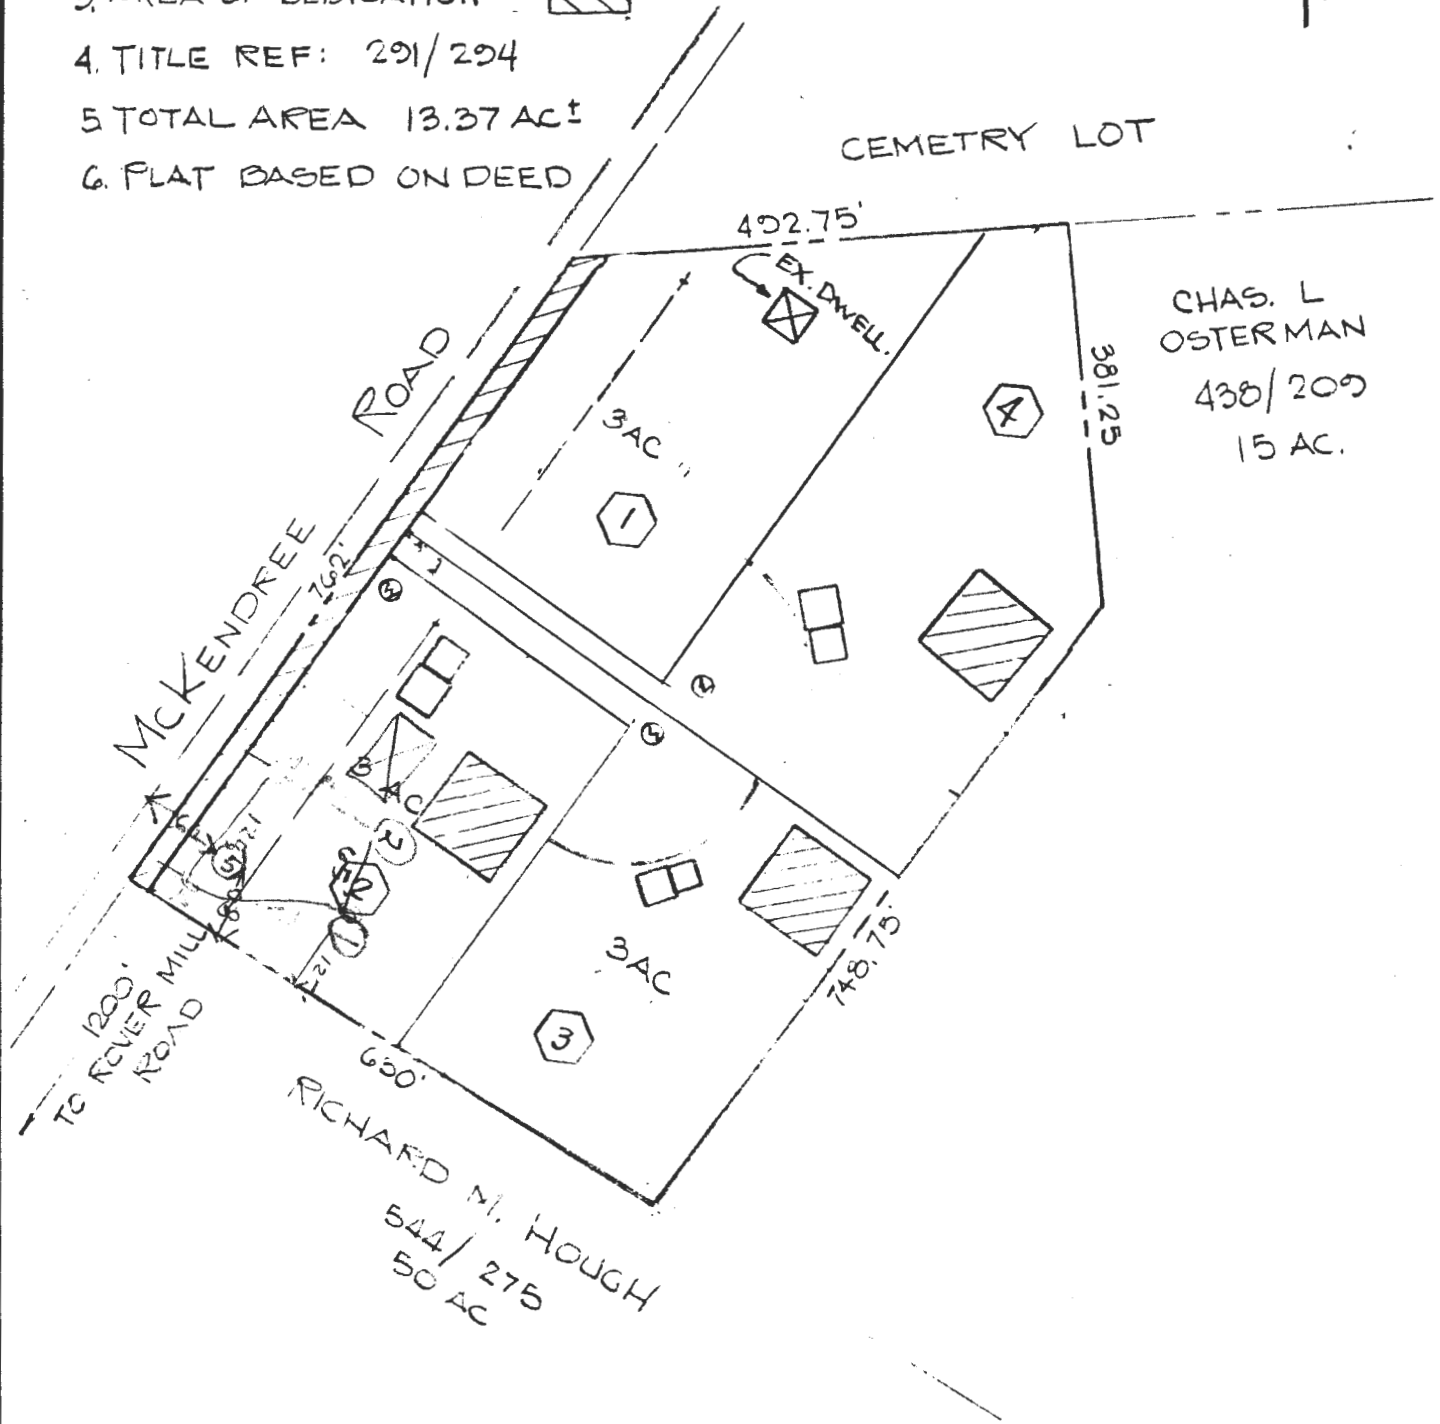 3. AREA OF DEDICATION
4. TITLE REF: 291/294
5 TOTAL AREA 13.37 AC±
6. PLAT BASED ON DEED
CEMETRY LOT
492.75'
EX. DWELL.
CHAS. L
OSTERMAN
438/209
15 AC.
381.25
4
3 AC
1
MCKENDREE ROAD
762'
W
W
W
3 AC
2
2
5
1
3 AC
3
748.75'
1200'
TO ROVER MILL
ROAD
650'
RICHARD M. HOUGH
544/275
50 AC